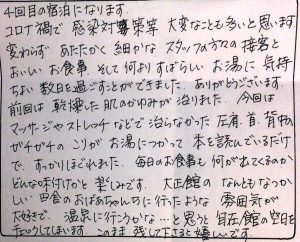 4回目の宿泊になります。
コロナ禍で感染対策等 大変なことも多いと思います
変わらず あたたかく 細やかな スタッフの方々の接客と
おいしいお食事 そして何よりすばらしい お湯に 気持
ちよい 数日を過ごすことができました。ありがとうございます。
前回は 乾燥した肌のかゆみが治りました。今回は
マッサージやストレッチなどで治らなかった 左肩、首、背中の
ガチガチのこりがお湯につかって 本を読んでいるだけ
で、すっかりほぐれました。毎日のお食事も何が出てくるのか
どんな味付けかと楽しみです。大正館の なんともなつか
しい 田舎のおばあちゃんちに行ったような 雰囲気が
大好きで、温泉に行こうかな…と思うと 自在館の空日を
チェックしてしまいます。このまま 残して下さると嬉しいです。